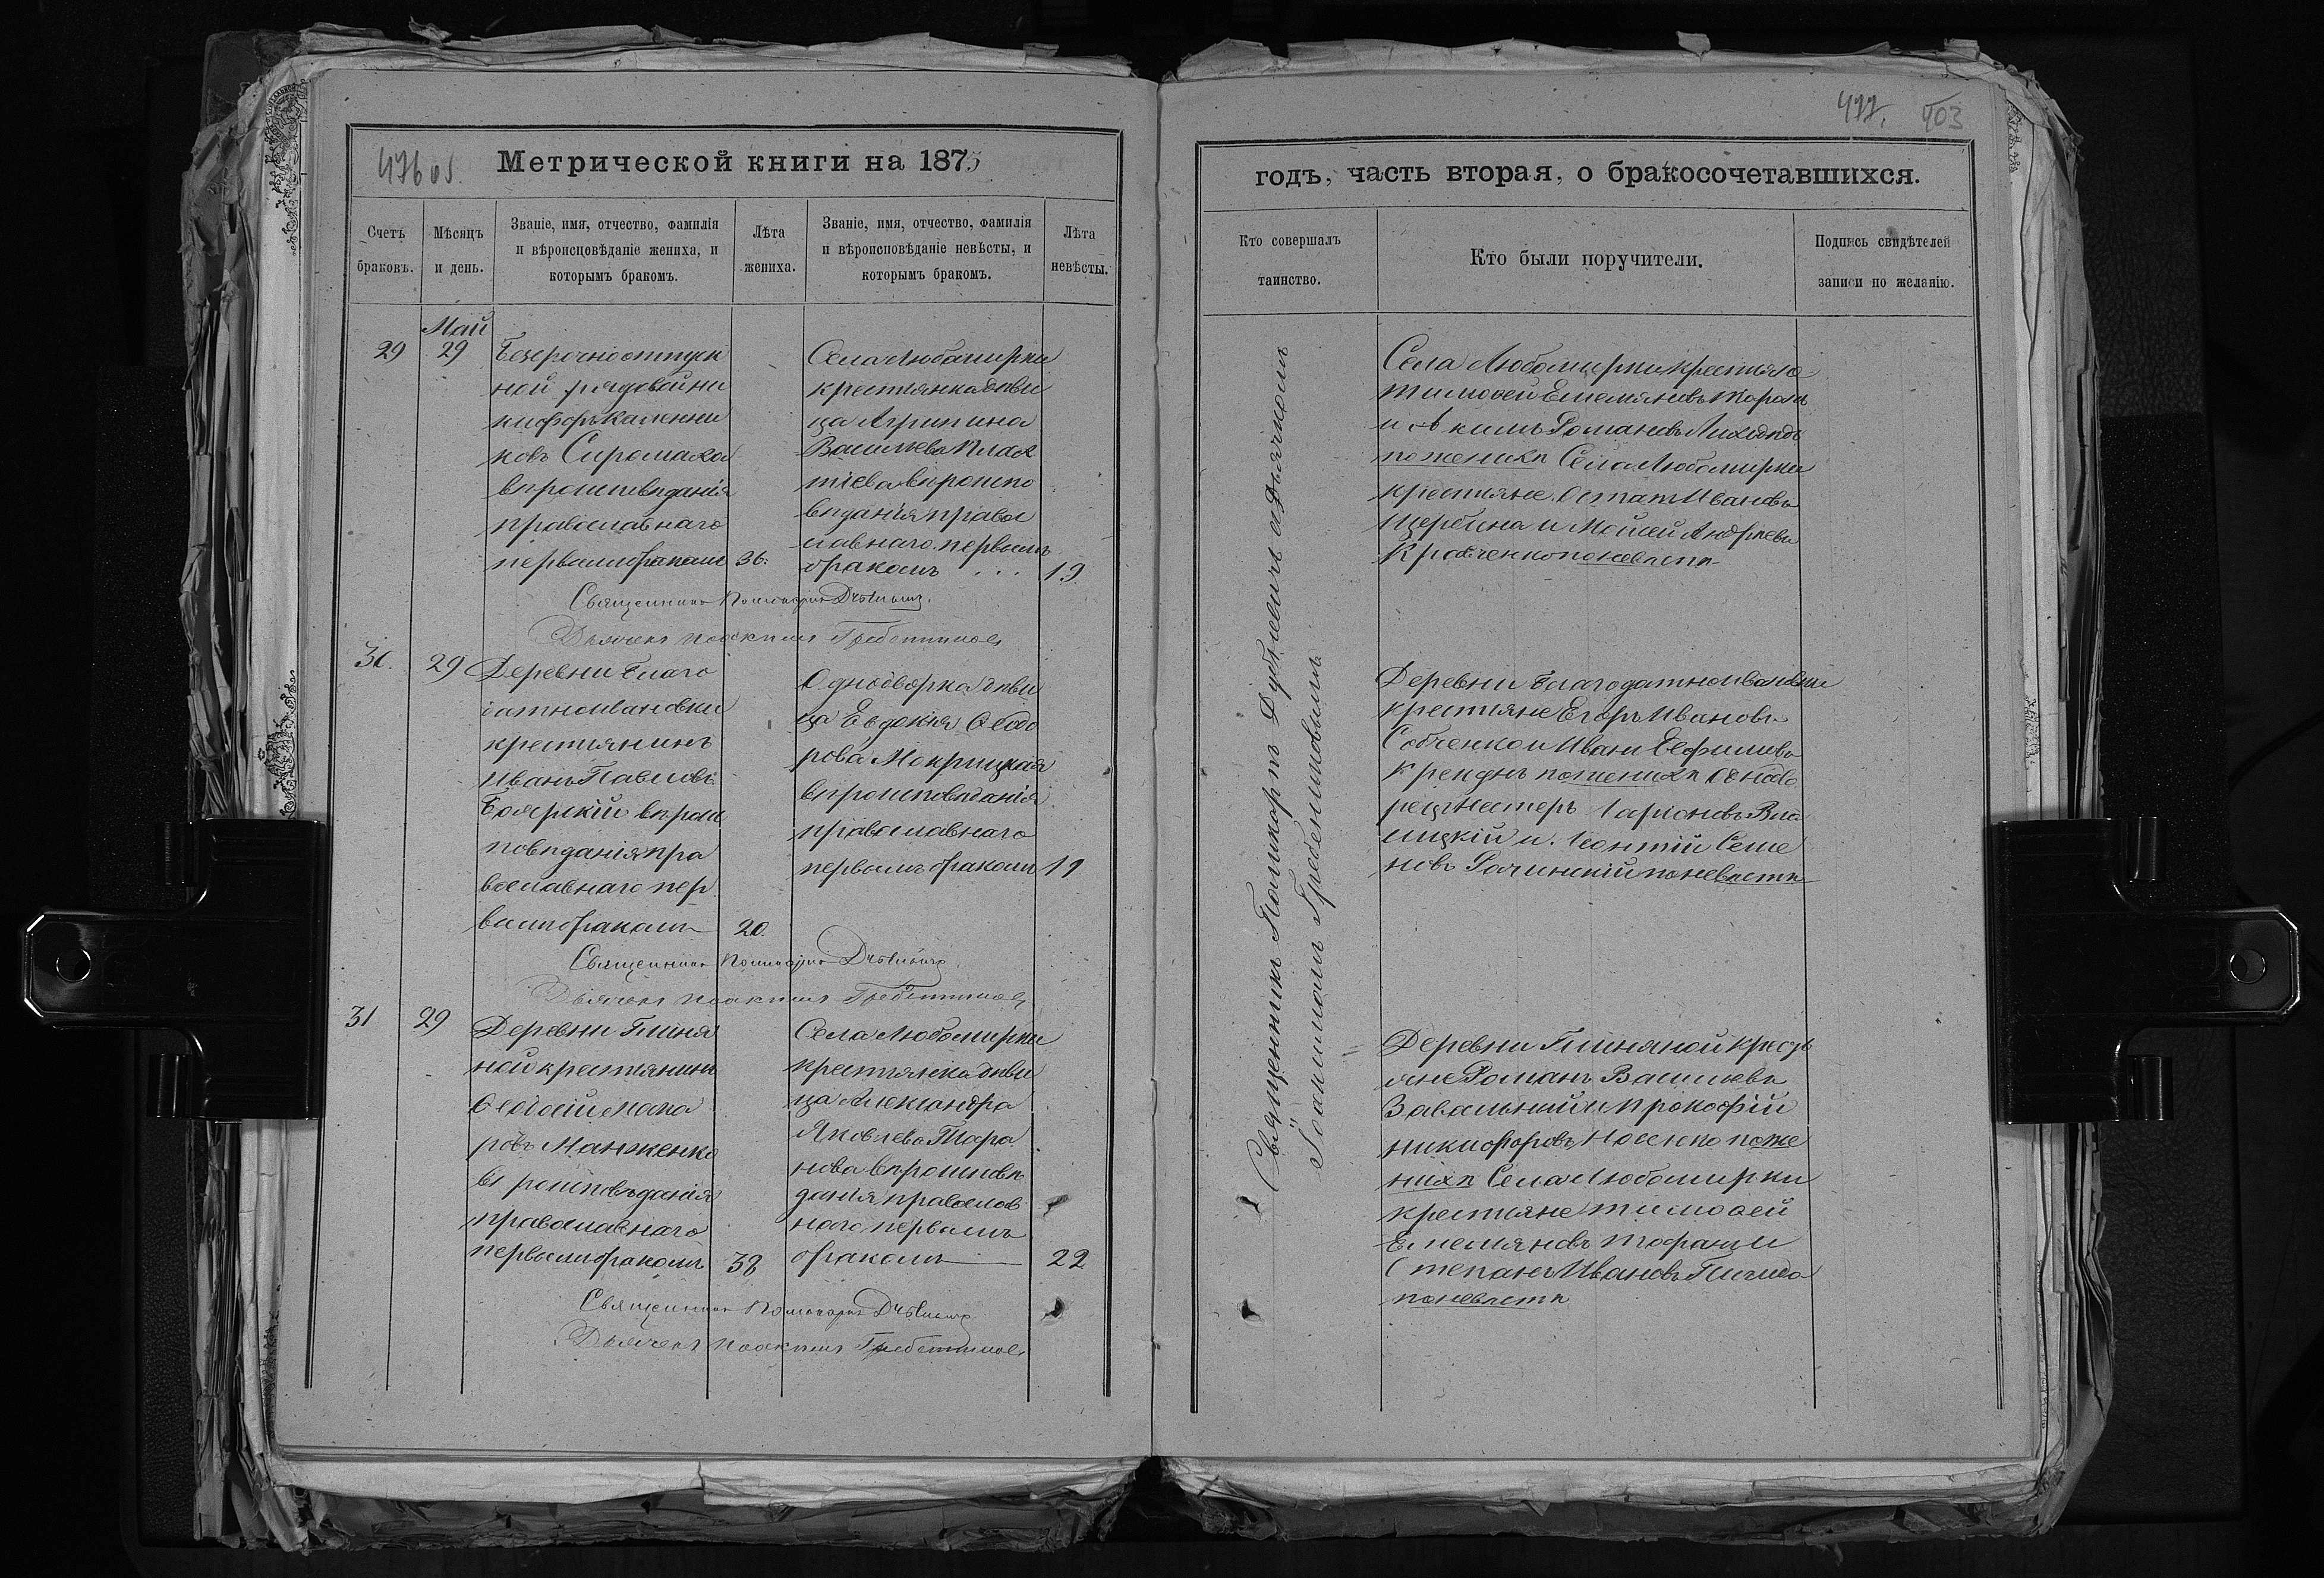 476 об.
Метрической книги на 1875
Счетъ браковъ.
Мѣсяцъ и день.
Званіе, имя, отчество, фамилія
и вѣроисповѣданіе жениха, и
которымъ бракомъ.
Лѣта жениха.
Званіе, имя, отчество, фамилія
и вѣроисповѣданіе невѣсты, и
которымъ бракомъ.
Лѣта невѣсты.
Май
29
29
Безсрочноотпуск
ной рядовой Ни
кифоръ Калинни
ковъ Сиромаха
вѣроисповѣданія
православнаго
первымъ бракомъ
36.
Села Любомирки
крестьянка дѣви
ца Агрипина
Васильева
вѣроиспо
вѣданія правос
лавнаго первымъ
бракомъ . . .
19.
Священник Поликарпъ
Дьячекъ Иоакимъ Гребенников
30.
29
Деревни Благо
датноивановки
крестьянинъ
Иванъ Павловъ
Боярскій вѣроис
повѣданія пра
вославнаго пер
вымъ бракомъ
20.
Однодворка дѣви
ца Евдокія Ѳеодо
рова Мокрицкая
вѣроисповѣданія
православнаго
первымъ бракомъ
19
Священник Поликарпъ
Дьячекъ Иоакимъ Гребенников
31
29
Деревни Глиня
ной крестьянинъ
Ѳеодосій Мака
ровъ Манженко
вѣроисповѣданія
православнаго
первымъ бракомъ
38
Села Любомирки
крестьянка дѣви
ца Александра
Яковлева Тара
нова вѣроисповѣ
данія православ
наго первымъ
бракомъ
22
Священник Поликарпъ
Дьячекъ Иоакимъ Гребенников
477.
403
годъ, часть вторая, о бракосочетавшихся.
Кто совершалъ таинство.
Кто были поручители.
Подпись свидѣтелей записи по желанію.
Священникъ Поликарпъ съ дьячкомъ
Іоакимомъ Гребенниковымъ
Села Любомирки крестьяне
Тимоѳей Емельяновъ Таранъ
и Акимъ Романовъ
по женихѣ Села Любомирки
крестьяне Остапъ Ивановъ
Щербина и Мойсей Андреевъ
Кравченко по невѣстѣ
Деревни Благодатноивановки
крестьяне Егоръ Ивановъ
Собченко и Иванъ Евфимовъ
по женихѣ Однодво
рецъ Нестеръ Иларіоновъ
и Леонтій Семе
новъ Рачинскій по невѣстѣ
Деревни Глиняной кресть
яне Романъ Васильевъ
Завальный и Прокофій
Никифоровъ Носенко по же
нихѣ Села Любомирки
крестьяне Тимоѳей
Емельяновъ Таранъ и
Степанъ Ивановъ
по невѣстѣ